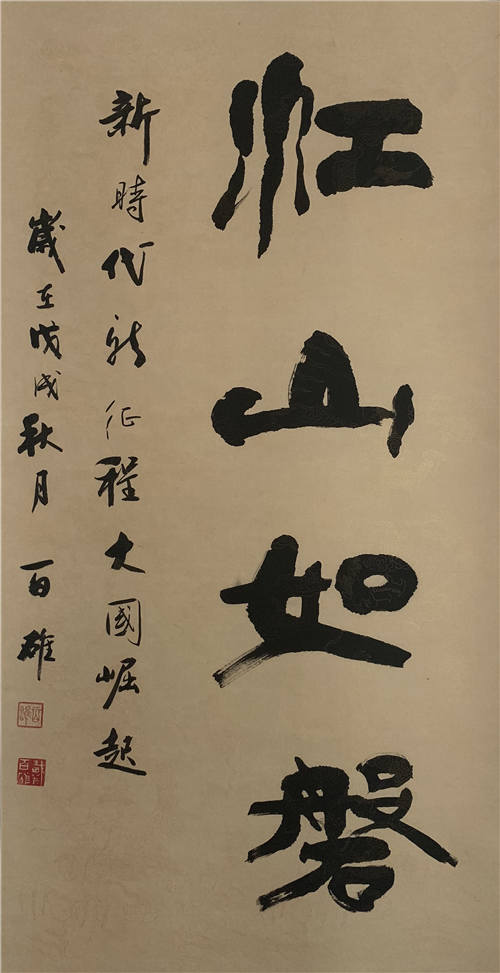 江山如磐
新時代新征程大國崛起
歲在戊戌秋月 百雄